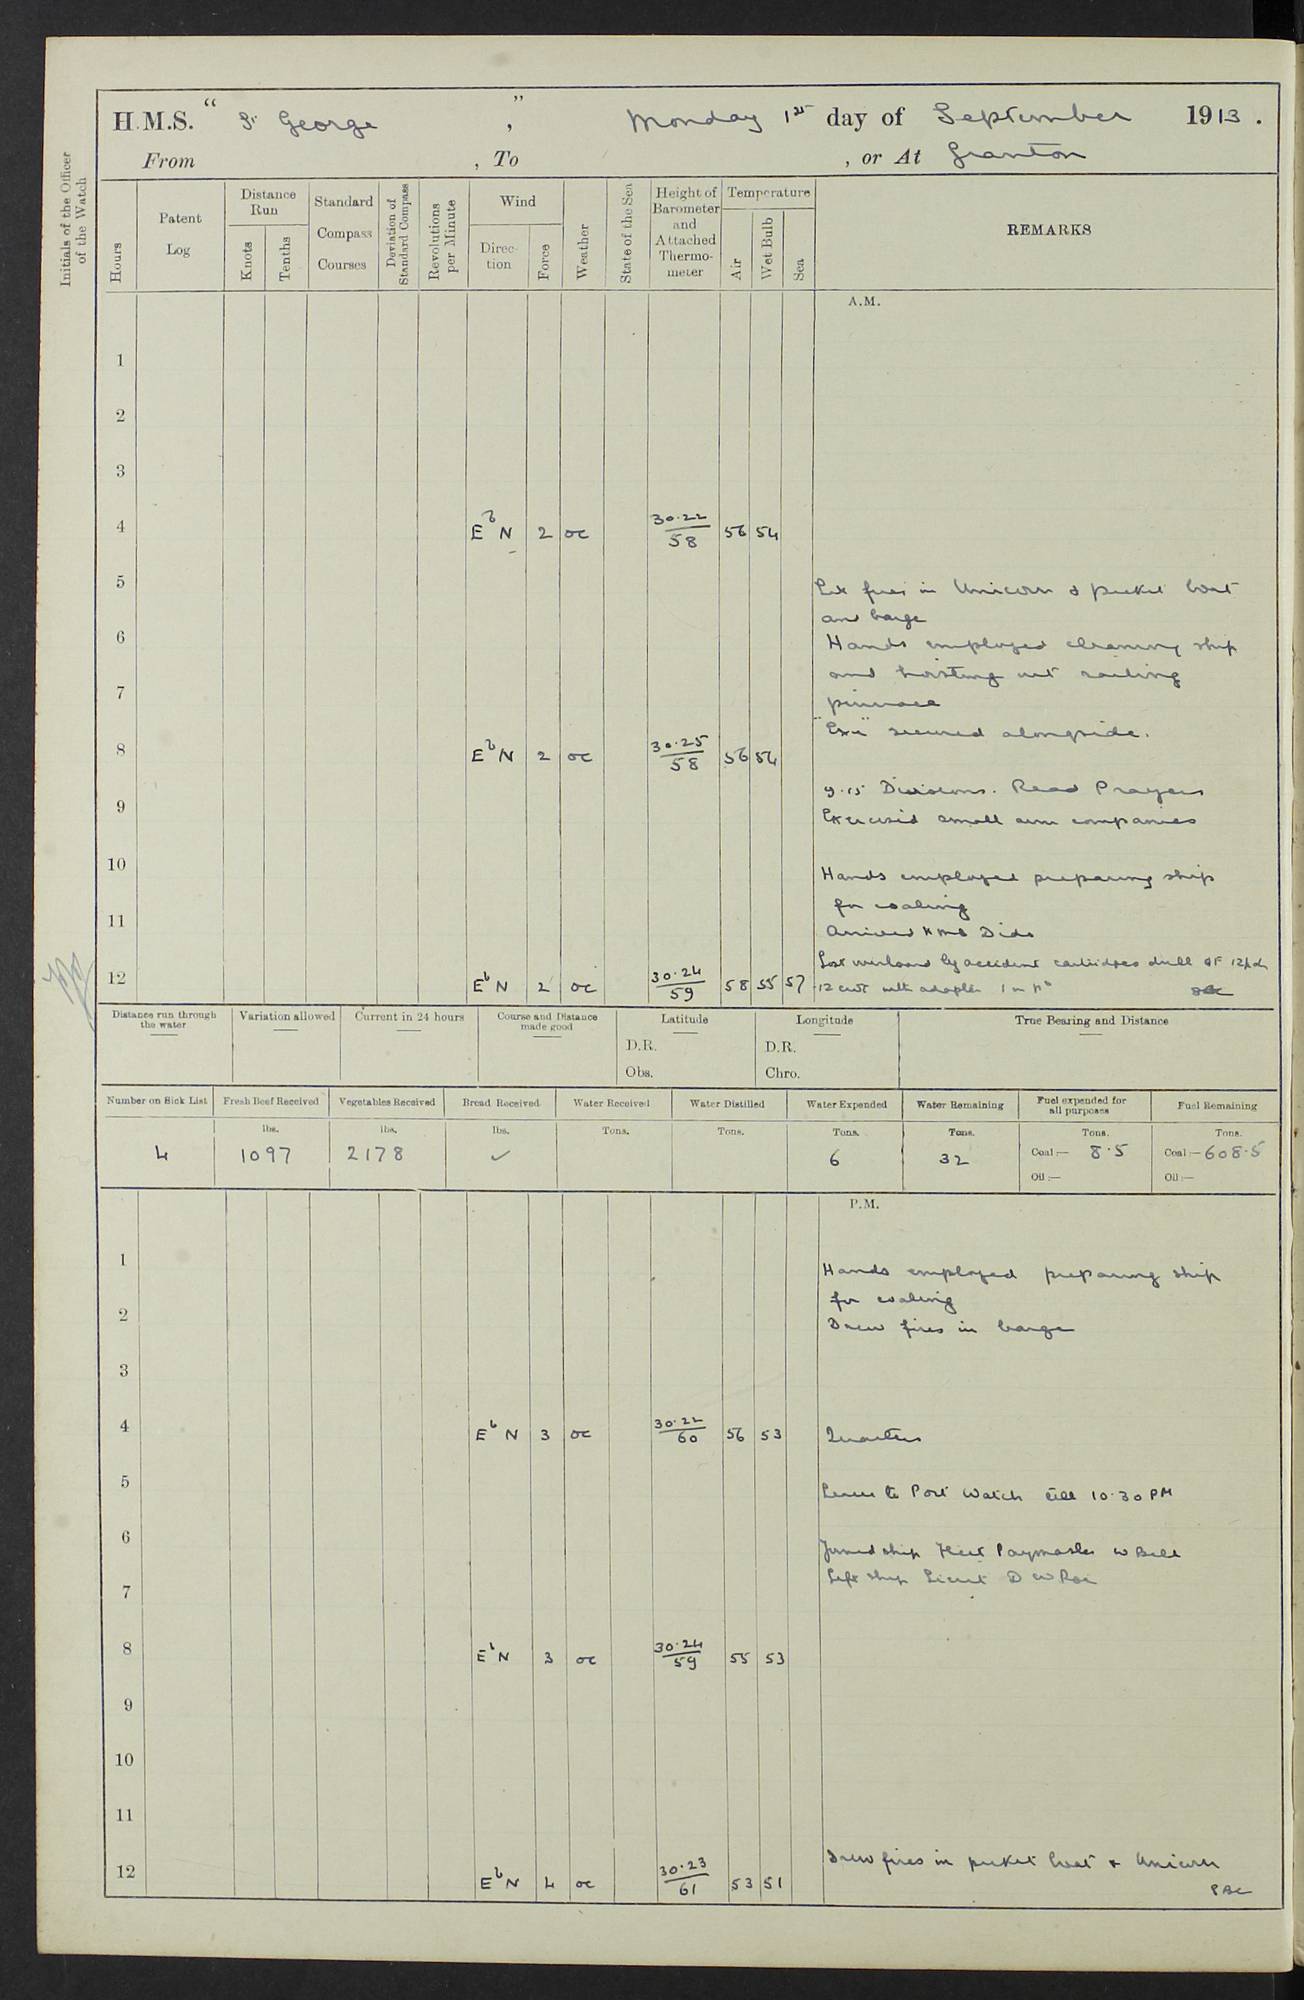 H.M.S. "St George", Monday 1st day of September 1913.
From , To , or At Granton
Initials of the Officer of the Watch
Hours
Patent Log
Distance Run
Knots
Tenths
Standard Compass Courses
Deviation of Standard Compass
Revolutions per Minute
Wind
Direction
Force
Weather
State of the Sea
Height of Barometer and Attached Thermometer
Temperature
Air
Wet Bulb
Sea
REMARKS
A.M.
1
2
3
4 EbN 2 oc 30.22/58 56 54
5 Lit fires in Unicorn & picket boat
and barge
6 Hands employed cleaning ship
and hoisting out sailing
7 pinnace
secured alongside.
8 EbN 2 oc 30.25/58 56 54
9.15 Divisions. Read Prayers
9 Exercised small arm companies
10 Hands employed preparing ship
for coaling
11 Arrived HMS Dido
Lost overboard by accident cartridges drill QF 12pdr
12 EbN 2 oc 30.24/59 58 55 57 12 cwt with adapter 1 in No
Distance run through the water
Variation allowed
Current in 24 hours
Course and Distance made good
Latitude
D.R.
Obs.
Longitude
D.R.
Chro.
True Bearing and Distance
Number on Sick List
Fresh Beef Received
Vegetables Received
Bread Received
Water Received
Water Distilled
Water Expended
Water Remaining
Fuel expended for all purposes
Fuel Remaining
lbs. lbs. lbs. Tons. Tons. Tons. Tons. Tons. Tons.
4 1097 2178 ✓ 6 32 Coal:— 8.5 Coal:— 608.5
Oil:— Oil:—
P.M.
1 Hands employed preparing ship
for coaling
2 Drew fires in barge
3
4 EbN 3 oc 30.22/60 56 53 Quarters
5 Leave to Port Watch till 10.30 PM
6 Joined ship Fleet Paymaster W Bell
7 Left ship Lieut D W Roe
8 EbN 3 oc 30.24/59 55 53
9
10
11
12 EbN 4 oc 30.23/61 53 51 Drew fires in picket boat & Unicorn